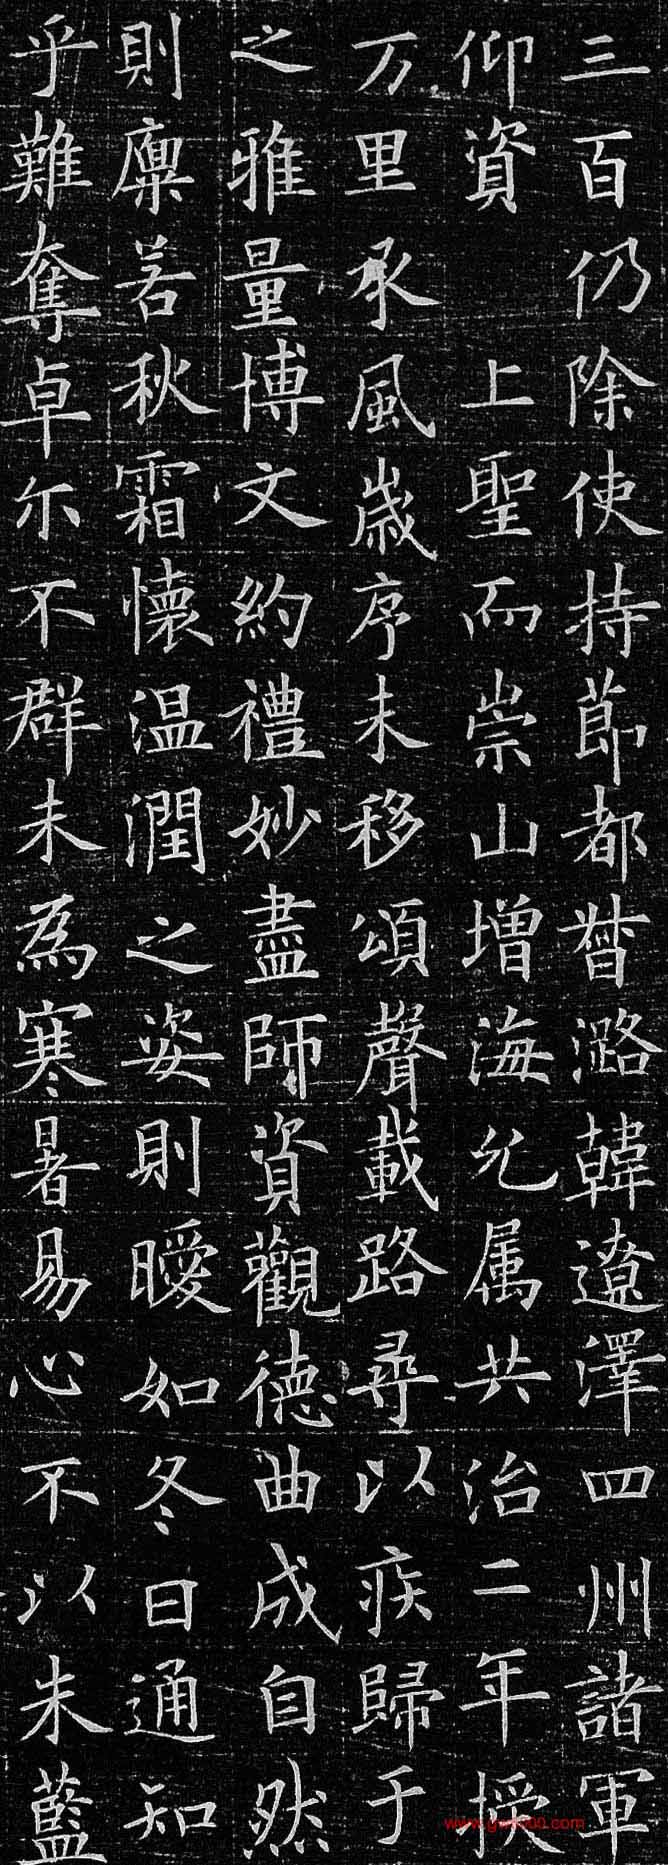 三百仍除使持莭都督潞韓遼澤四州諸軍
仰資 上聖而崇山增海允属共治二年授
万里承風嵗序未移頌聲載路尋以疾歸于
之雅量博文約禮妙盡師資觀德曲成自然
則廩若秋霜懐温潤之姿則曖如冬日通知
乎難奪卓尓不群未為寒暑易心不以朱藍